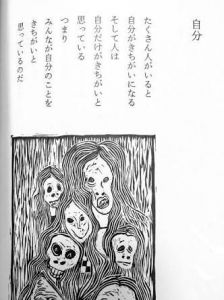 自分
たくさん人がいると
自分がきちがいになる
そして人は
自分だけがきちがいと
思っている
つまり
みんなが自分のことを
きちがいと
思っているのだ